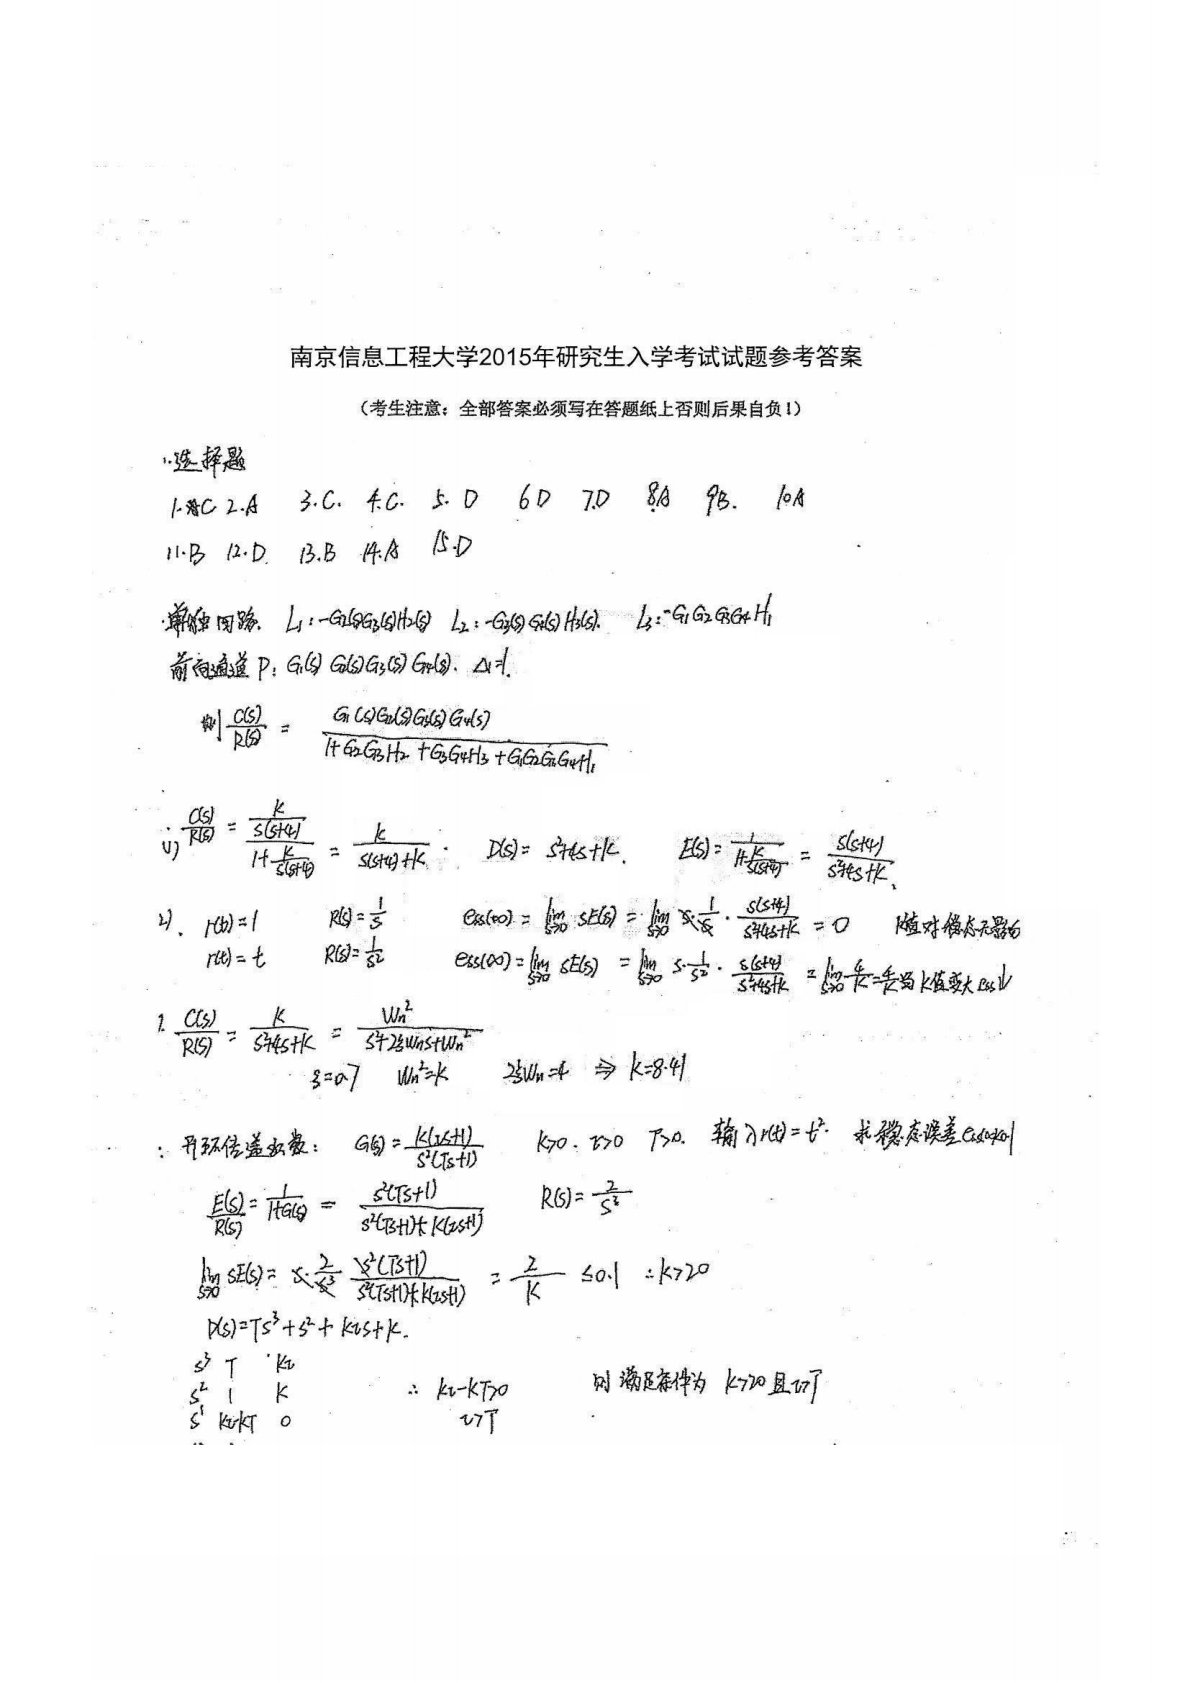 南京信息工程大学2015年研究生入学考试试题参考答案
（考生注意：全部答案必须写在答题纸上否则后果自负！）
选择题
1.C 2.A 3.C. 4.C. 5.D 6D 7.D 8.A 9B. 10A
11.B 12.D. 13.B 14.A 15.D
单独回路. L₁:-G₂(s)G₃(s)H₂(s) L₂:-G₃(s)G₄(s)H₃(s). L₃:-G₁G₂G₃G₄H₁
前向通道 P: G₁(s)G₂(s)G₃(s)G₄(s). Δ₁=1.
则 C(s)/R(s) = G₁(s)G₂(s)G₃(s)G₄(s) / (1+G₂G₃H₂+G₃G₄H₃+G₁G₂G₃G₄H₁)
1) C(s)/R(s) = (K/(s(s+4)))/(1+K/(s(s+4))) = K/(s(s+4)+K). D(s)=s²+4s+K. E(s)=1/(1+K/(s(s+4))) = s(s+4)/(s²+4s+K).
2). r(t)=1 R(s)=1/s ess(∞)=lim s→0 sE(s)=lim s→0 s·1/s·s(s+4)/(s²+4s+K)=0 K值对稳态无影响
r(t)=t R(s)=1/s² ess(∞)=lim s→0 sE(s)=lim s→0 s·1/s²·s(s+4)/(s²+4s+K)=lim s→0 4/K=4/K 当K值变大 ess↓
C(s)/R(s)=K/(s²+4s+K)=Wn²/(s²+2ξWns+Wn²)
ξ=0.7 Wn²=K 2ξWn=4 ⇒ K=8.41
: 开环传递函数: G(s)=K(τs+1)/(s²(Ts+1)) K>0. τ>0 T>0. 输入r(t)=t². 求稳态误差
E(s)/R(s)=1/(1+G(s))=s²(Ts+1)/(s²(Ts+1)+K(τs+1)) R(s)=2/s³
lim s→0 sE(s)=s·2/s³·s²(Ts+1)/(s²(Ts+1)+K(τs+1))=2/K≤0.1 ∴K>20
D(s)=Ts³+s²+Kτs+K.
s³ T Kτ
s² 1 K ∴ Kτ-KT>0 则满足条件为 K>20且τ>T
s¹ Kτ-KT 0 τ>T